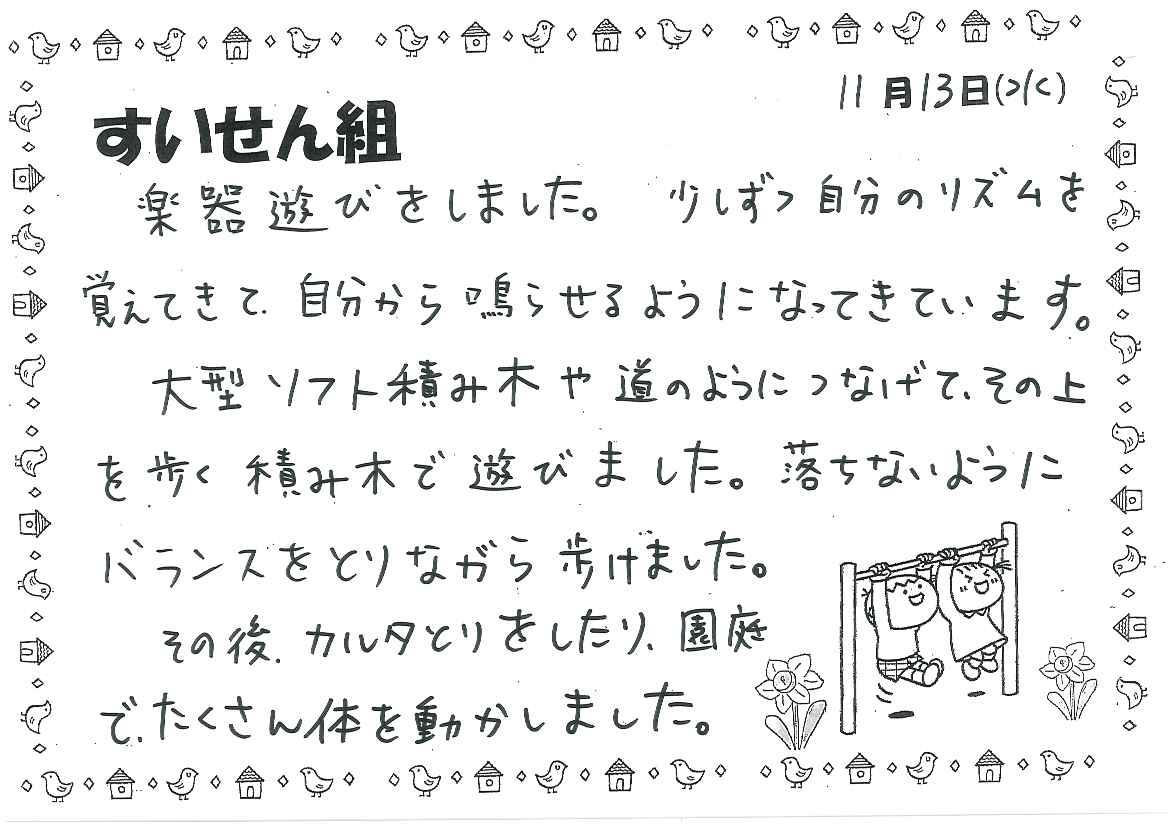 11月13日(水)
すいせん組
楽器遊びをしました。 少しずつ自分のリズムを
覚えてきて、自分から鳴らせるようになってきています。
大型ソフト積み木や道のようにつなげて、その上
を歩く積み木で遊びました。落ちないように
バランスをとりながら歩けました。
その後、カルタとりをしたり、園庭
で、たくさん体を動かしました。